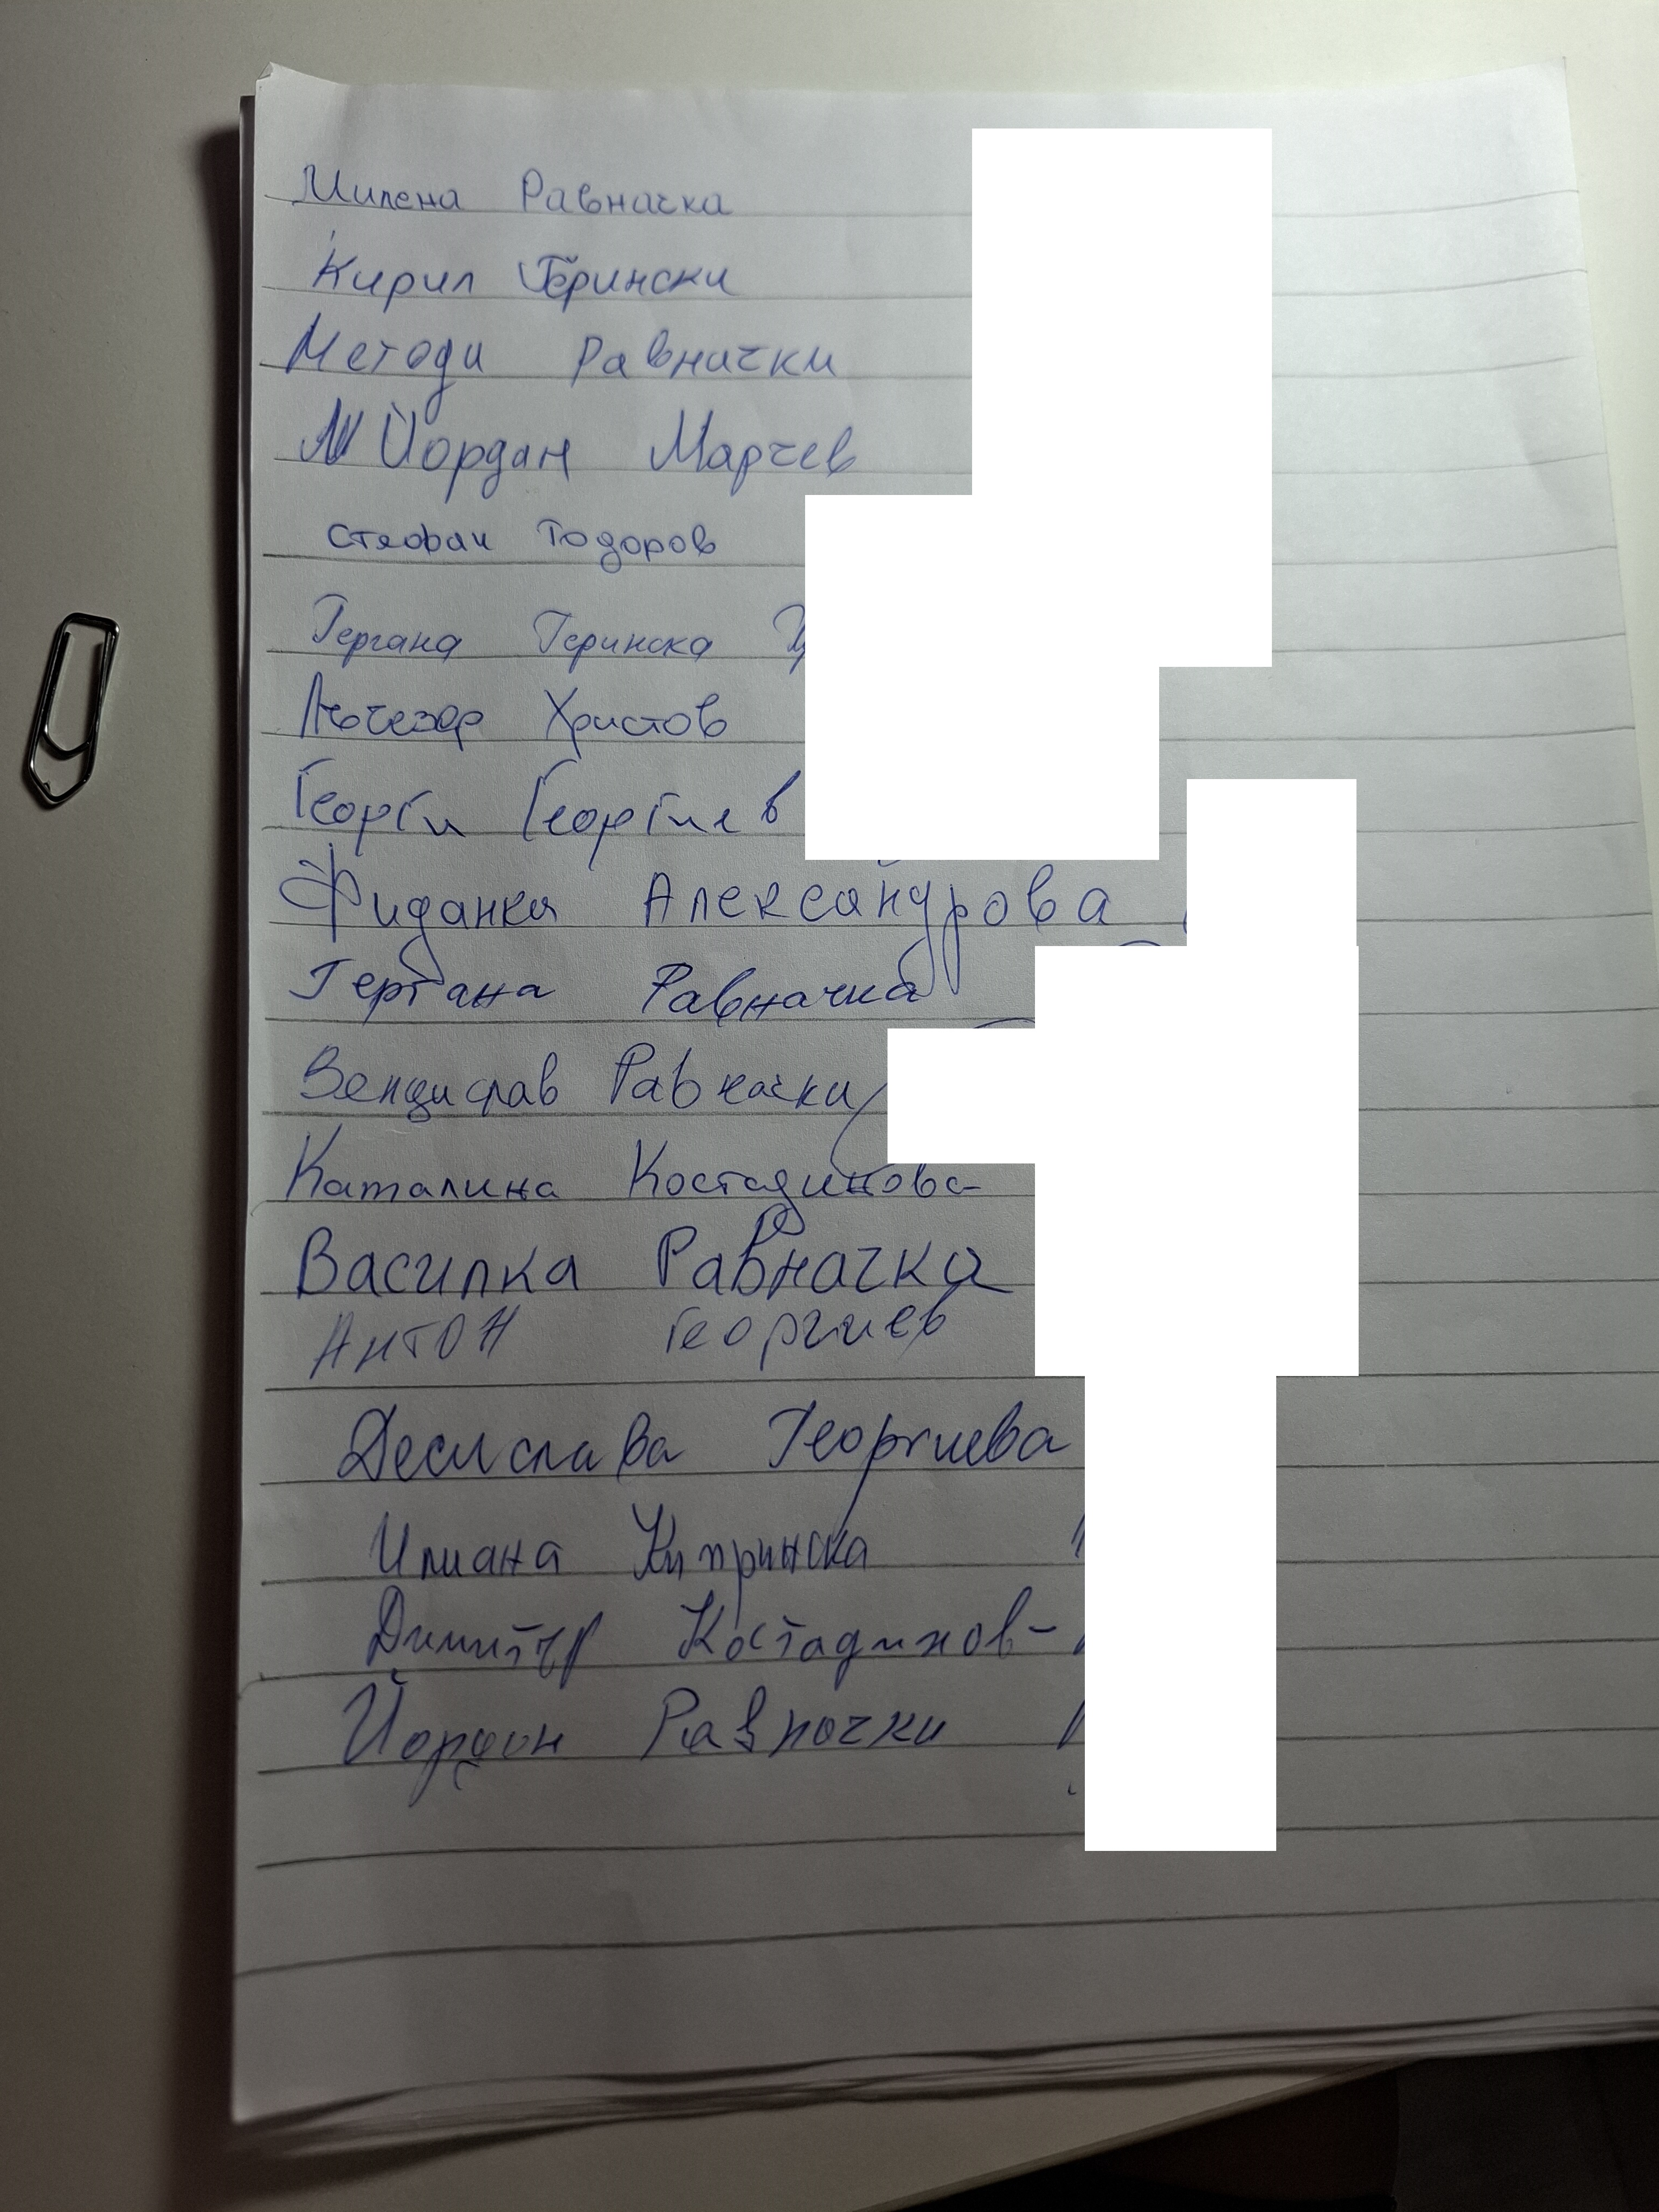 Милена Равначка
Кирил Герински
Методи Равначки
Йордан Марчев
Стефан Тодоров
Гергана Геринска
Христов
Георги Георгиев
Фиданка Александрова
Гергана Равначка
Венцислав Равначки
Каталина Костадинова
Василка Равначка
Антон Георгиев
Десислава Георгиева
Илиана Кипринска
Димитър Костадинов-
Йордан Равначки